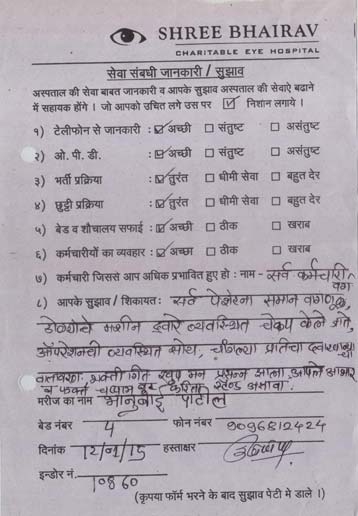 SHREE BHAIRAV
CHARITABLE EYE HOSPITAL
सेवा संबधी जानकारी / सुझाव
अस्पताल की सेवा बाबत जानकारी व आपके सुझाव अस्पताल की सेवाऐ बढाने
में सहायक होंगे । जो आपको उचित लगे उस पर ☑ निशान लगाये ।
१) टेलीफोन से जानकारी : ☑ अच्छी ☐ संतुष्ट ☐ असंतुष्ट
२) ओ. पी. डी. : ☑ अच्छी ☐ संतुष्ट ☐ असंतुष्ट
३) भर्ती प्रक्रिया : ☑ तुरंत ☐ धीमी सेवा ☐ बहुत देर
४) छुट्टी प्रक्रिया : ☑ तुरंत ☐ धीमी सेवा ☐ बहुत देर
५) बेड व शौचालय सफाई : ☑ अच्छी ☐ ठीक ☐ खराब
६) कर्मचारीयों का व्यवहार : ☑ अच्छी ☐ ठीक ☐ खराब
७) कर्मचारी जिससे आप अधिक प्रभावित हुए हो : नाम - सर्व कर्मचारी वर्ग
८) आपके सुझाव / शिकायत : सर्व पेशंटना समान वागणूक
डोळ्यांचे मशीन द्वारे व्यवस्थित चेकप केले जाते,
ऑपरेशनची व्यवस्थित सोय, चांगल्या प्रतिचा
वातावरण, भक्ती गित मन प्रसन्न झाला आपले आभार
व फक्त चप्पल बूट करिता स्टँड असावा.
मरीज का नाम भानुबाई पाटील
बेड नंबर 4 फोन नंबर 9096812424
दिनांक 12/01/15 हस्ताक्षर
इन्डोर नं. 10860
(कृपया फॉर्म भरने के बाद सुझाव पेटी मे डाले ।)